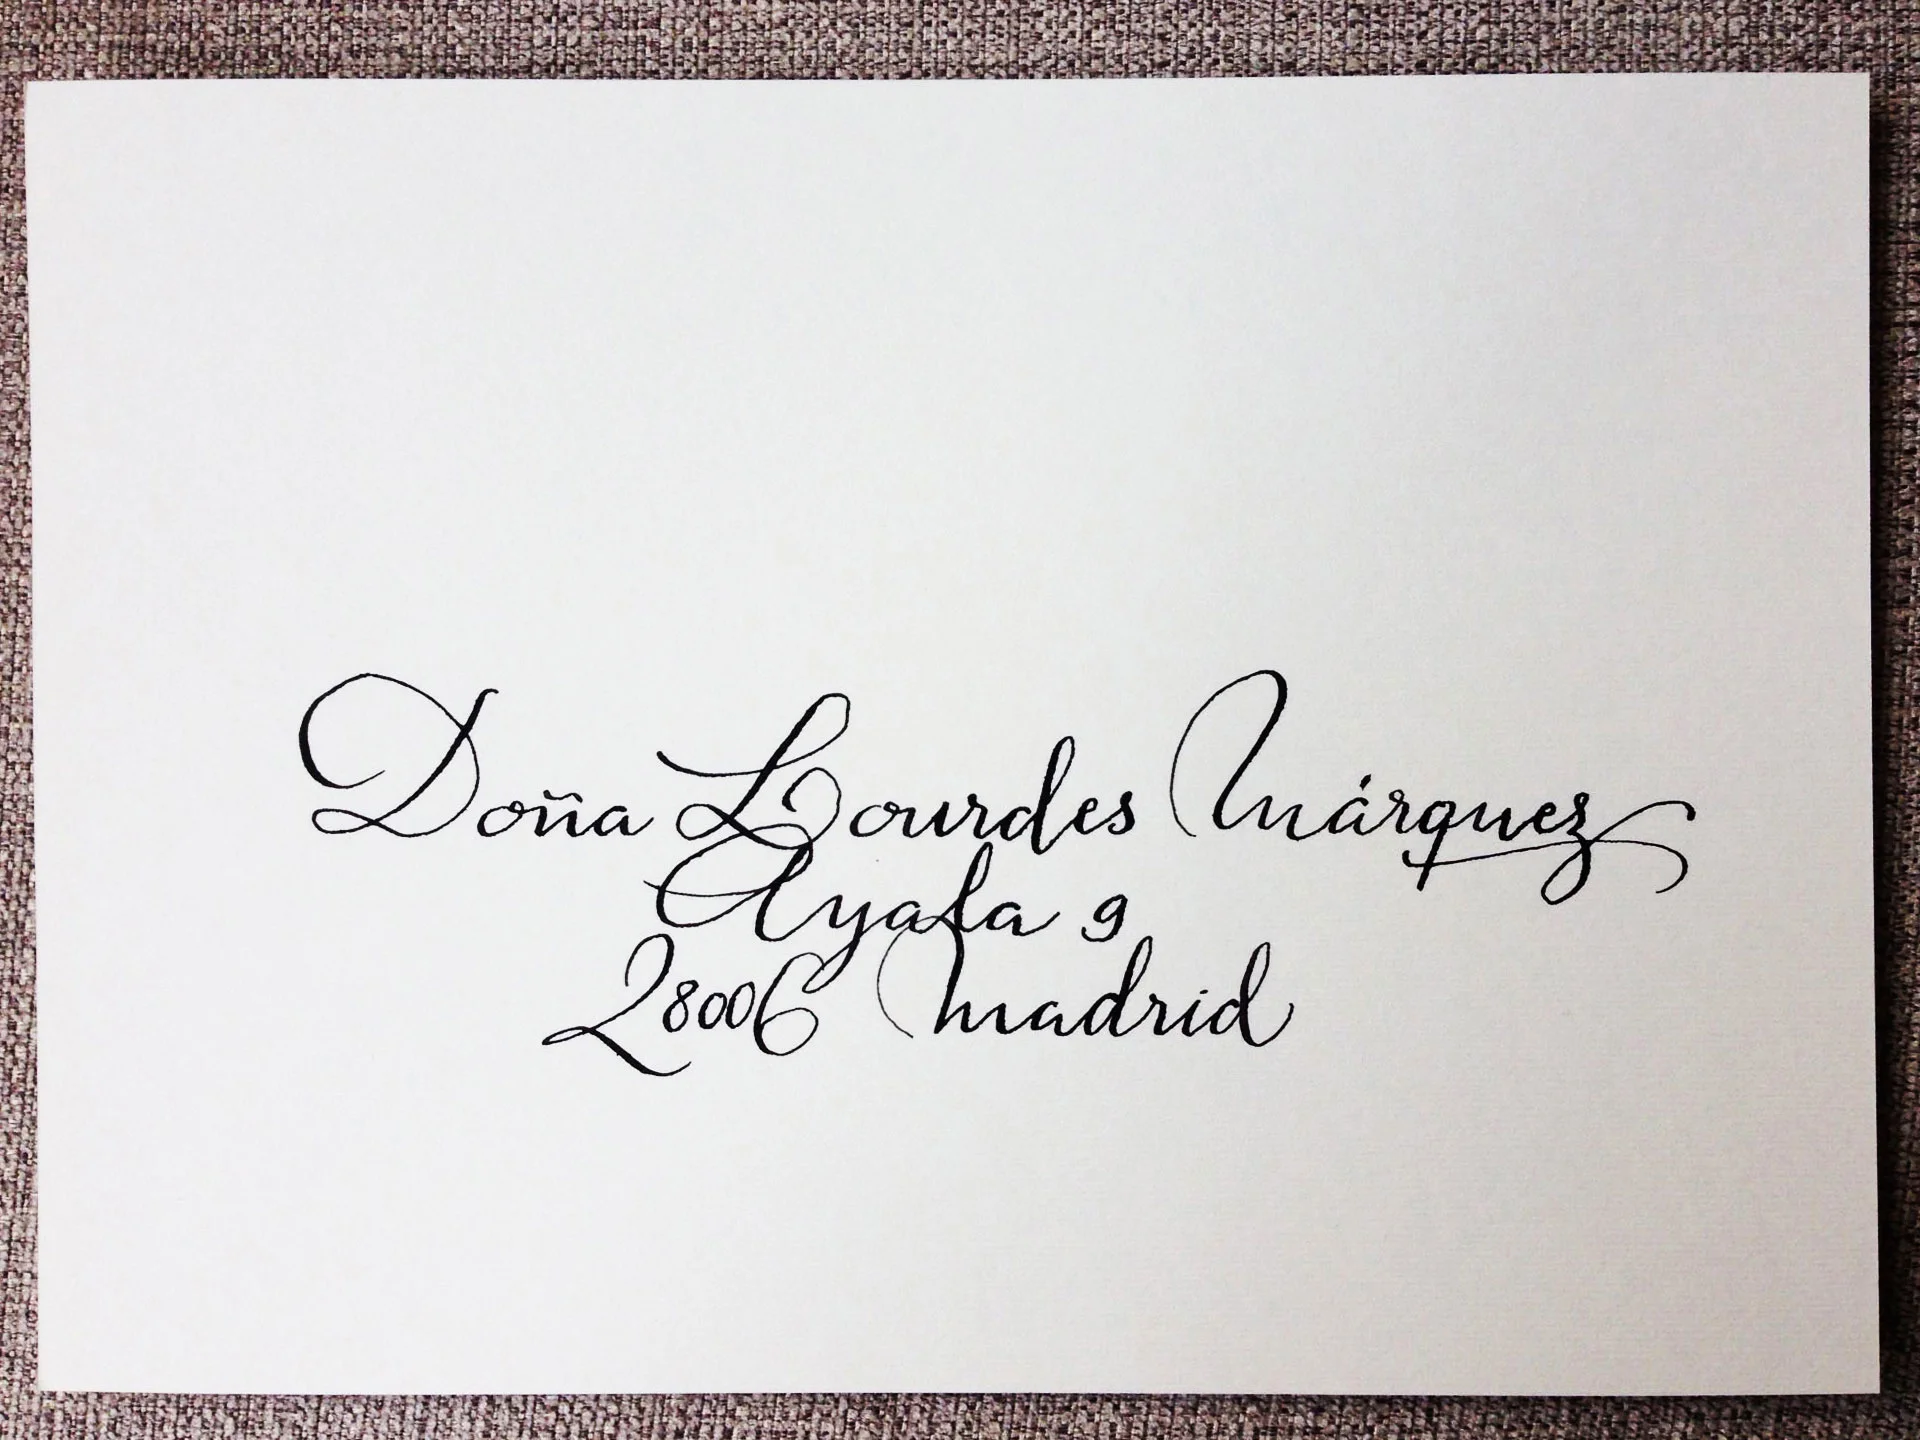 Doña Lourdes Márquez
Ayala 9
28006 Madrid